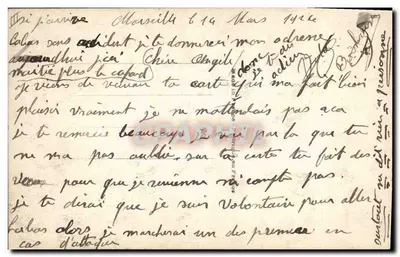 si j'arrive Marseille le 14 Mars 1924
labas sans accident je te donnerai mon adresse
aujourd'hui j'ai Chère Angèle
moitié plus le cafard
donc
je te dis
adieu
je viens de recevoir ta carte qui m'a fait bien
plaisir vraiment je ne m'attendais pas a ça
je te remercie beaucoup je vois par la que tu
ne m'a pas oublié sur ta carte tu fait des
vœux pour que je revienne n'i compte pas.
je te dirai que je suis volontaire pour aller
labas alors je marcherai un des premiers en
cas d'attaque
surtout ne dit rien a personne